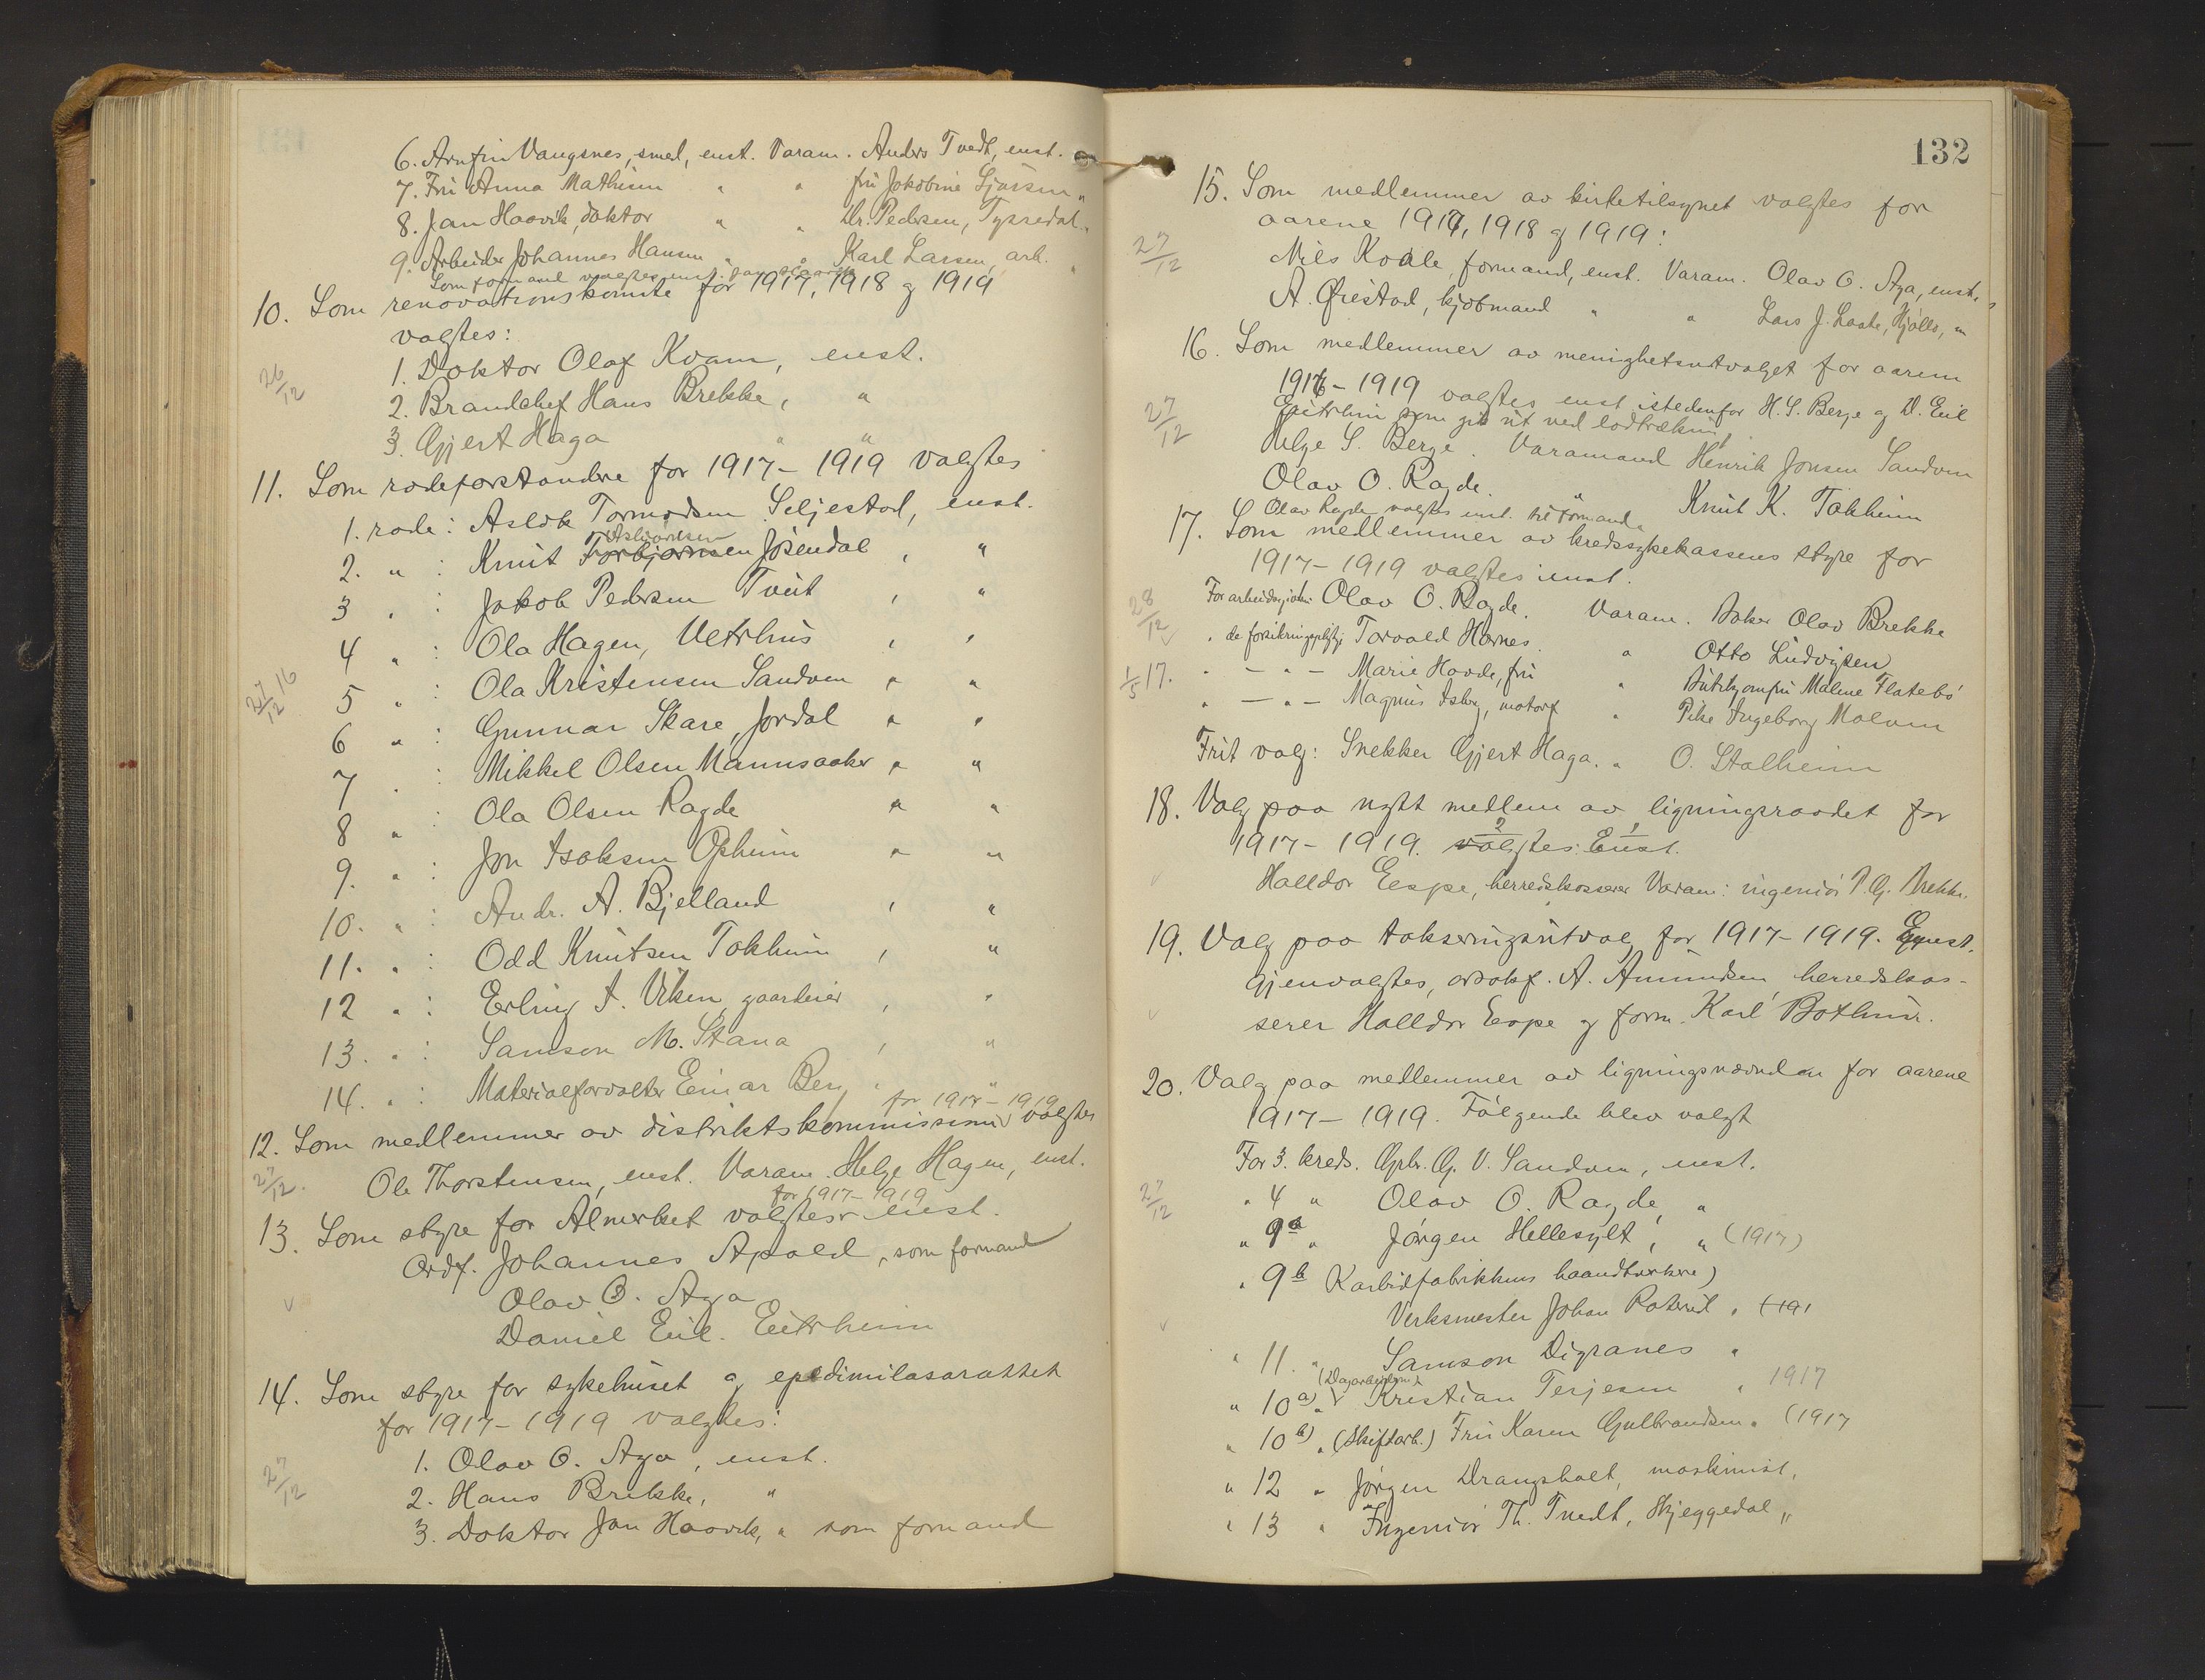 6. Arnfin Vangsnes, smed, enst. Varam. Anders Tvedt, enst.
7. Fru Anna Mathisen " " fru Jakobine
8. Jan Haavik, doktor " " Dr. Pedersen, Tyssedal "
9. Arbeider Johannes Hansen " " Karl Larsen, arb. "
Som formand valgtes enst.
10. Som renovationskomite for 1917, 1918 og 1919
valgtes:
26/12
1. Doktor Olaf Kvam, enst.
2. Brandchef Hans Brekke, "
3. Gjert Haga " "
11. Som rodeforstandere for 1917-1919 valgtes
1. rode: Aslak Tormodsen Seljestad, enst.
2. " : Knut Torbjørnsen Jøsendal, "
3 " : Jakob Pedersen Tveit, "
4 " : Ola Hagen, Vetrhus, "
27/12 16
5 " : Ola Kristensen Sandven " "
6 " : Gunnar Skare, Jordal " "
7 " : Mikkel Olsen Mannsaaker " "
8 " : Ola Olsen Ragde " "
9. " : Jon Isaksen Opheim " "
10. " : Andr. A. Bjelland, "
11. " : Odd Knutsen Tokheim, "
12 " : Erling I. Viken, gaardeier, "
13. " : Samson M. Stana, "
14. " : Materialforvalter Einar Berg, "
for 1917-1919
12. Som medlemmer av distriktskommissionen valgtes
27/12.
Ole Thorstensen, enst. Varam. Helge Hagen, enst.
for 1917-1919
13. Som styre for Alverket valgtes enst.
Ordf. Johannes Apold, som formand
Olav O. Aga
Daniel Eul. Eitrheim
14. Som styre for sykehuset og epedimilasarattet
for 1917-1919 valgtes:
27/12
1. Olav O. Aga, enst.
2. Hans Brekke, "
3. Doktor Jan Haavik, " som formand
132
15. Som medlemmer av kirketilsynet valgtes for
aarene 1917, 1918 og 1919:
27/12
Nils Koale, formand, enst. Varam. Olav O. Aga, enst.
A. Øiestad, kjøbmand " " Lars J. Laate, Hjøllo, "
16. Som medlemmer av menighetsutvalget for aarene
1916-1919 valgtes enst istedenfor H. S. Berge og D. Eul
27/12
Eitrheim som gik ut ved lodtrækning
Helge S. Berge. Varamand Henrik Jonsen Sandven
Olav O. Ragde. " Knut K. Tokheim
Olav Ragde valgtes enst. til formand.
17. Som medlemmer av kredssykekassens styre for
1917-1919 valgtes enst.
28/12
For arbeidsgiver: Olav O. Ragde. Varam. Baker Olav Brekke
" de forsikringspligtige Torvald Hornes. " Otto Ludvigsen
1/5 17.
" - " - Marie Hovde, fru " Butikjomfru Malene Flatebø
" - " - Magnus Isberg, motorf " Pike Ingeborg
Frit valg: Snekker Gjert Haga. " O. Stalheim
18. Valg paa nytt medlem av ligningsraadet for
1917-1919. valgtes: Enst.
Halldor Eespe, herredskasserer Varam: ingeniør P. G. Brekke.
19. Valg paa takseringsutvalg for 1917-1919. Enst.
gjenvalgtes, ordf. A. Amundsen herredskas-
serer Halldor Eespe og form. Karl Bothner.
20. Valg paa medlemmer av ligningsnævnden for aarene
1917-1919. Følgende blev valgt
For 3. kreds. Grbr. G. V. Sandven, enst.
27/12
" 4 " Olav O. Ragde, "
" 9a " Jørgen Hellesylt, " (1917)
" 9b Karbidfabrikkens haandverkere)
Verksmester Johan " (191
" 11. " Samson Digranes "
(Dagarbeidere)
" 10a) " Kristian Terjesen " 1917
" 10b) " (Skiftarb.) Fru Karen Gulbrandsen " (1917
" 12 " Jørgen Drangsholt, maskinist,
" 13 " Ingeniør Th. Tvedt, Skjeggedal "